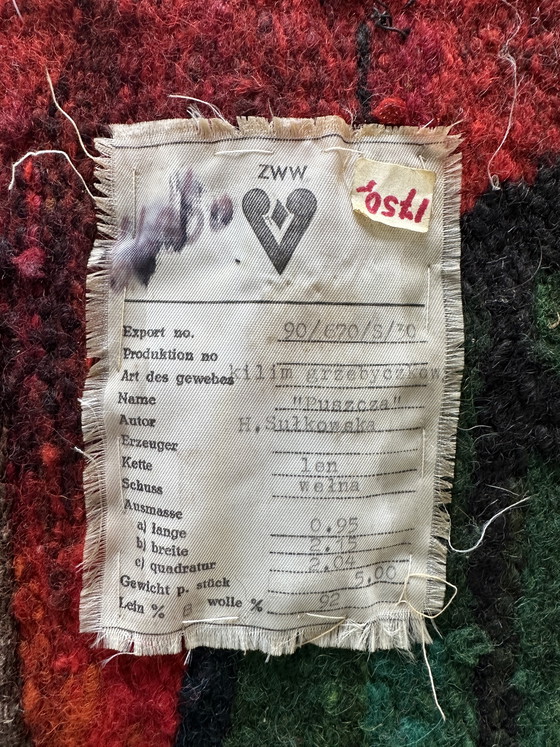 ZWW
1750,-
Export no. 90/670/S/30
Produktion no
Art des gewebes kilim grzebyczkow
Name "Puszcza"
Autor H.Sułkowska
Erzeuger
Kette len
Schuss wełna
Ausmasse
a) lange 0.95
b) breite 2.15
c) quadratur 2.04
Gewicht p. stück 5.00
Lein % 8 wolle % 92